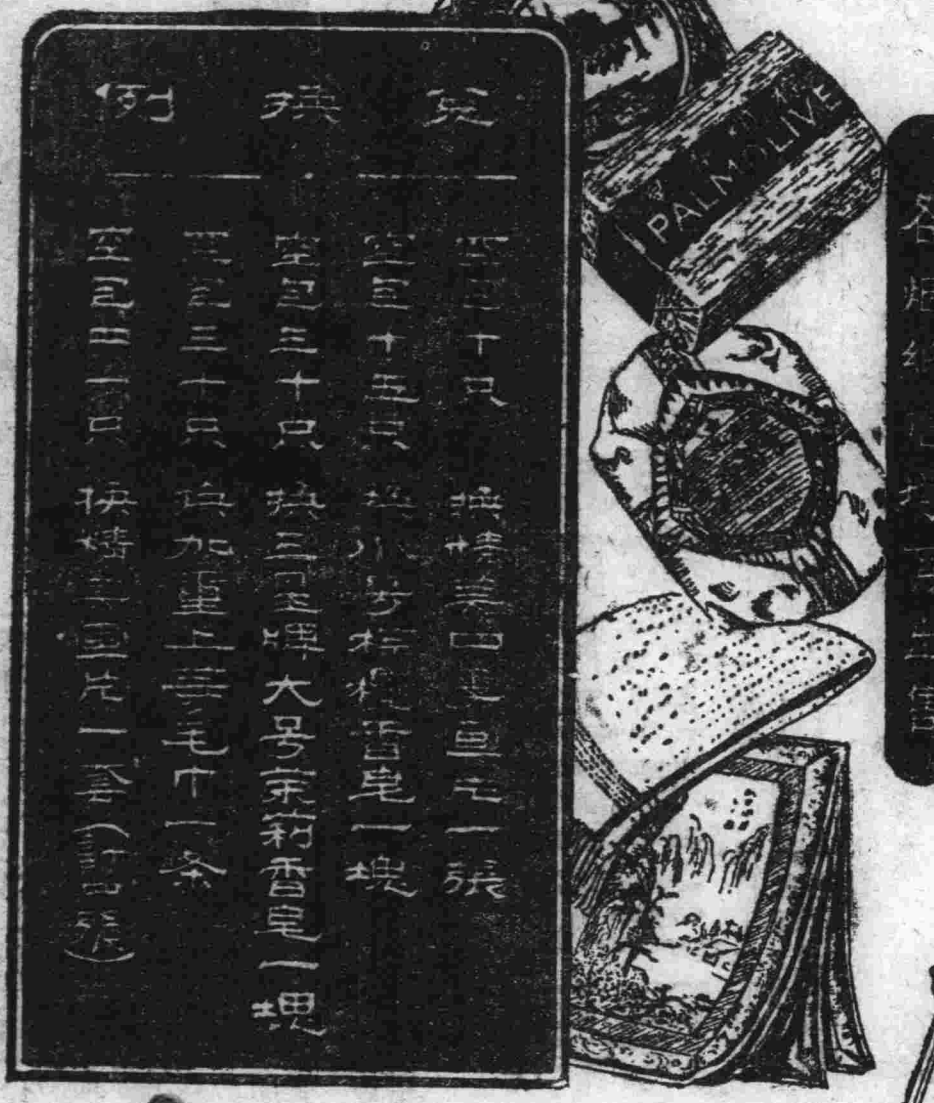 兌換例
空包十只 換精美日曆一張
空包十五只 換小号棕欖香皂一塊
空包三十只 換三星牌大号茉莉香皂一塊
空包三十只 換加重上等毛巾一条
空包四十只 換精美画片一套(計四張)
PALMOLIVE
各烟紙店均
售